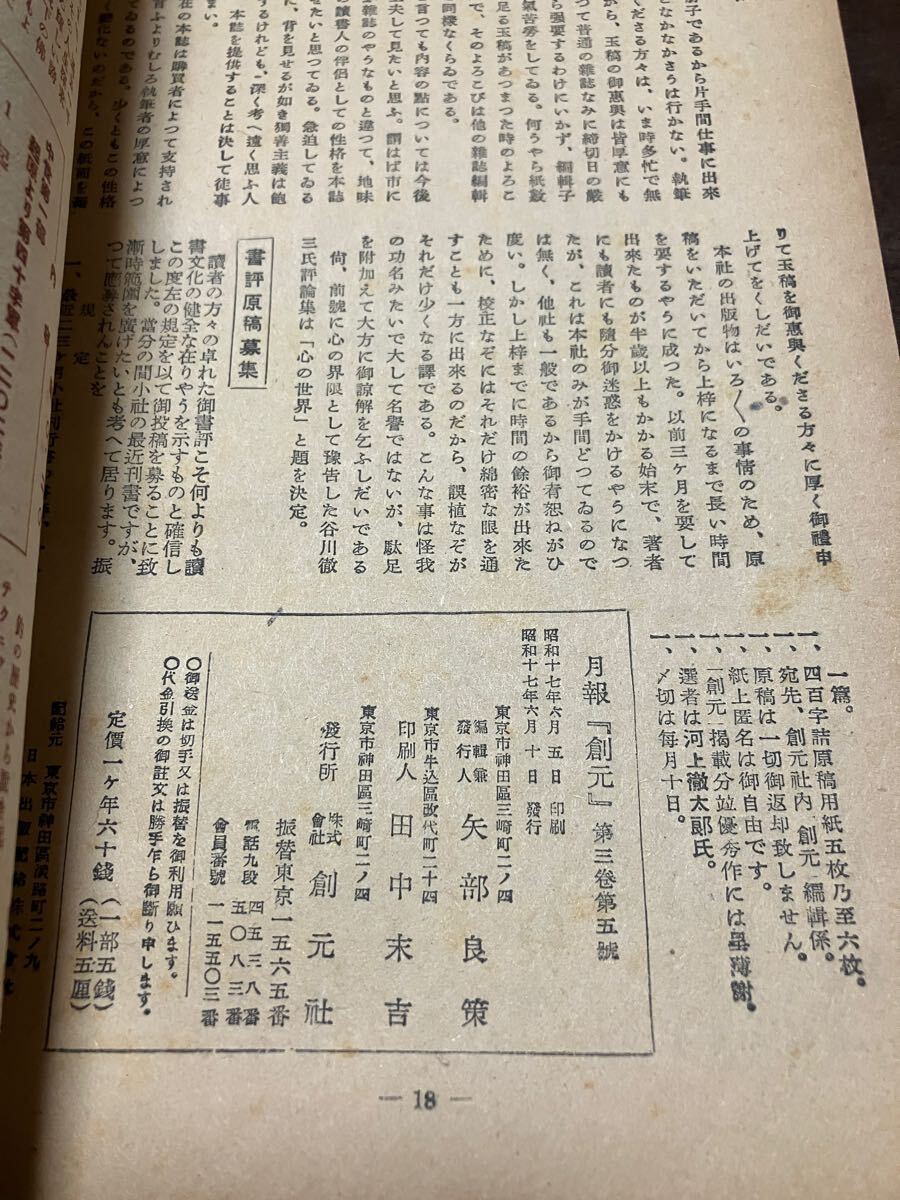 册子であるから片手間仕事に出來
となかなかさうは行かない。執筆
くださる方々は、いま時多忙で無
から、玉稿の御惠與は皆厚意にも
つて普通の雜誌なみに締切日の嚴
ら强要するわけにいかず、編輯子
氣苦勞をしてゐる。何うやら紙數
足る玉稿があつまつた時のよろこ
で、そのよろこびは他の雜誌編輯
同樣なくらゐである。
言つても内容の點については今後
夫して見たいと思ふ。謂はば市に
雜誌のやうなものと違つて、地味
讀書人の伴侶としての性格を本誌
せたいと思つてゐる。急迫してゐる
に、背を見せるが如き獨善主義は飽
するけれども、深く考へ遠く思ふ人
本誌を提供することは決して徒事
まい。
在の本誌は購買者によつて支持され
言ふよりむしろ執筆者の厚意によつ
てゐるのである。少くともこの性格
りて玉稿を御惠與くださる方々に厚く御禮申
上げてをくしだいである。
本社の出版物はいろ〱の事情のため、原
稿をいただいてから上梓になるまで長い時間
を要するやうに成つた。以前三ヶ月を要して
出來たものが半歳以上もかかる始末で、著者
にも讀者にも隨分御迷惑をかけるやうになつ
たが、これは本社のみが手間どつてゐるので
は無く、他社も一般であるから御肯恕ねがひ
度い。しかし上梓までに時間の餘裕が出來た
ために、校正なぞにはそれだけ綿密な眼を通
すことも一方に出來るのだから、誤植なぞが
それだけ少くなる譯である。こんな事は怪我
の功名みたいで大して名譽ではないが、駄足
を附加えて大方に御諒解を乞ふしだいである
尙、前號に心の界限として豫告した谷川徹
三氏評論集は「心の世界」と題を決定。
書評原稿募集
讀者の方々の卓れた御書評こそ何よりも讀
書文化の健全な在りやうを示すものと確信し
この度左の規定を以て御投稿を募ることに致
しました。當分の間小社の最近刊書ですが、
漸時範圍を廣げたいとも考へて居ります。振
つて應募されんことを
規定
一篇。
一、四百字詰原稿用紙五枚乃至六枚。
一、宛先、創元社内「創元」編輯係。
一、原稿は一切御返却致しません。
一、紙上匿名は御自由です。
一、「創元」揭載分並優秀作には呈薄謝。
一、選者は河上徹太郞氏。
一、〆切は每月十日。
月報『創元』第三卷第五號
昭和十七年六月五日 印刷
昭和十七年六月十日 發行
東京市神田區三崎町二ノ四
編輯兼發行人 矢部良策
東京市牛込區改代町二十四
印刷人 田中末吉
東京市神田區三崎町二ノ四
發行所 株式會社 創元社
振替東京一五六五番
電話九段 四五三八番
五〇八三番
會員番號 一一五五〇三番
〇御送金は切手又は振替を御利用願ひます。
〇代金引換の御註文は勝手乍ら御斷り申します。
定價一ヶ年六十錢(一部五錢)
(送料五厘)
配給元 東京市神田區淡路町二ノ九
日本出版配給株式會社
— 18 —